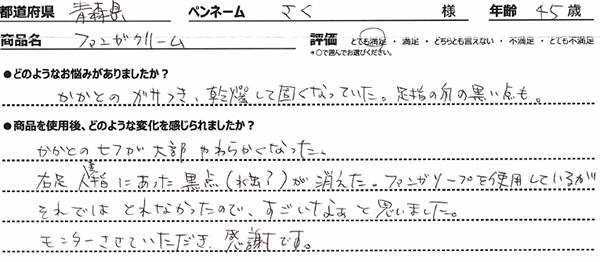 都道府県 青森県 ペンネーム さく 様 年齢 45 歳
商品名 ファンガクリーム 評価 とても満足 ・ 満足 ・ どちらとも言えない ・ 不満足 ・ とても不満足
*○で囲んでお選びください。
●どのようなお悩みがありましたか？
かかとの ガサつき、乾燥して固くなっていた。足指の 黒い点も。
●商品を使用後、どのような変化を感じられましたか？
かかとの 大部 やわらかくなった。
右足 にあった 黒点( ？)が 消えた。ファンガソープを使用しているが
それでは とれなかったので、すごいなぁと思いました。
モニターさせていただき 感謝です。